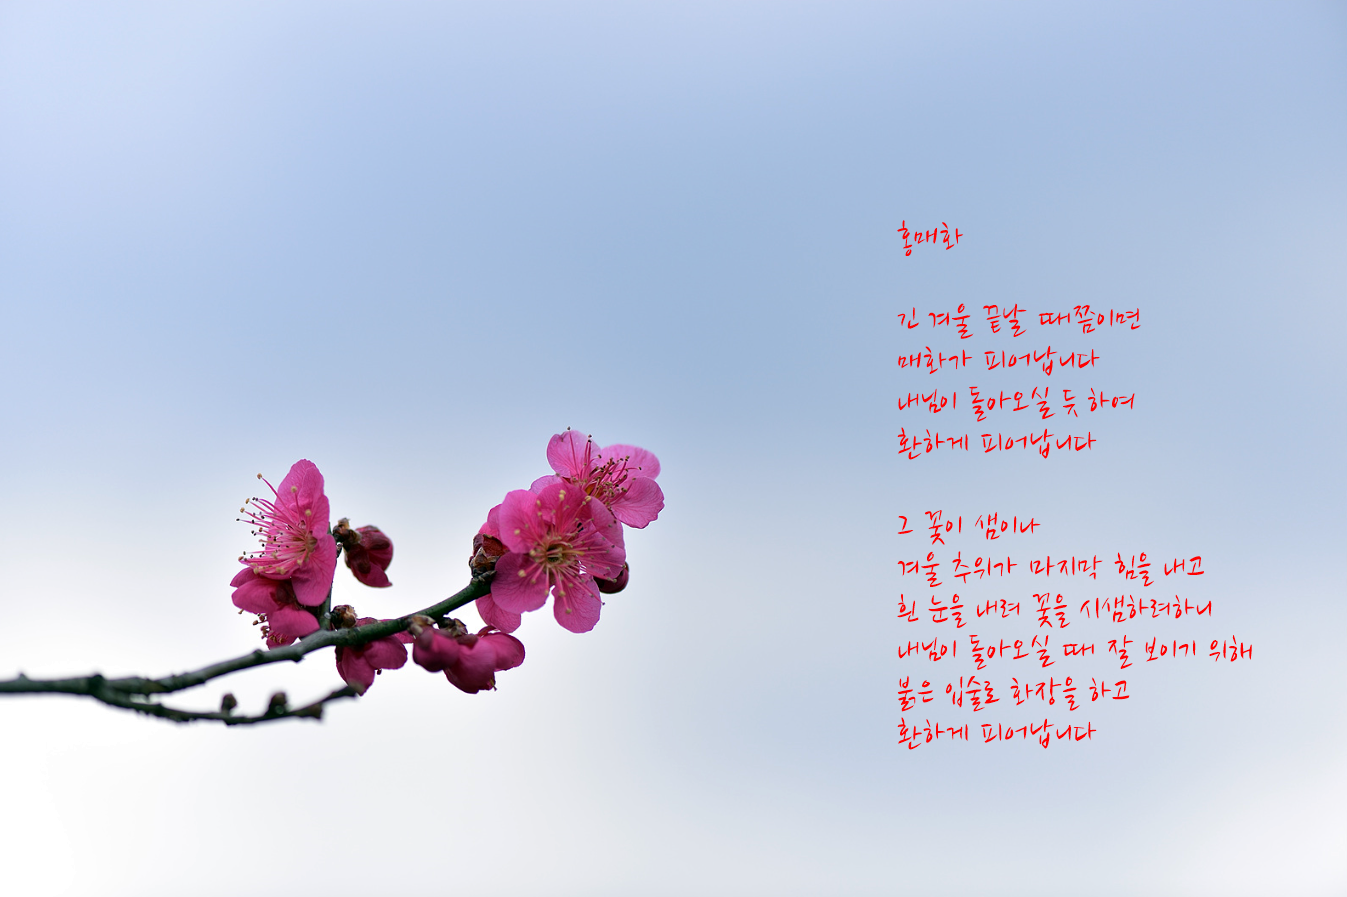 홍매화
긴 겨울 끝날 때쯤이면
매화가 피어납니다
내님이 돌아오실 듯 하여
환하게 피어납니다
그 꽃이 샘이나
겨울 추위가 마지막 힘을 내고
흰 눈을 내려 꽃을 시샘하려하니
내님이 돌아오실 때 잘 보이기 위해
붉은 입술로 화장을 하고
환하게 피어납니다